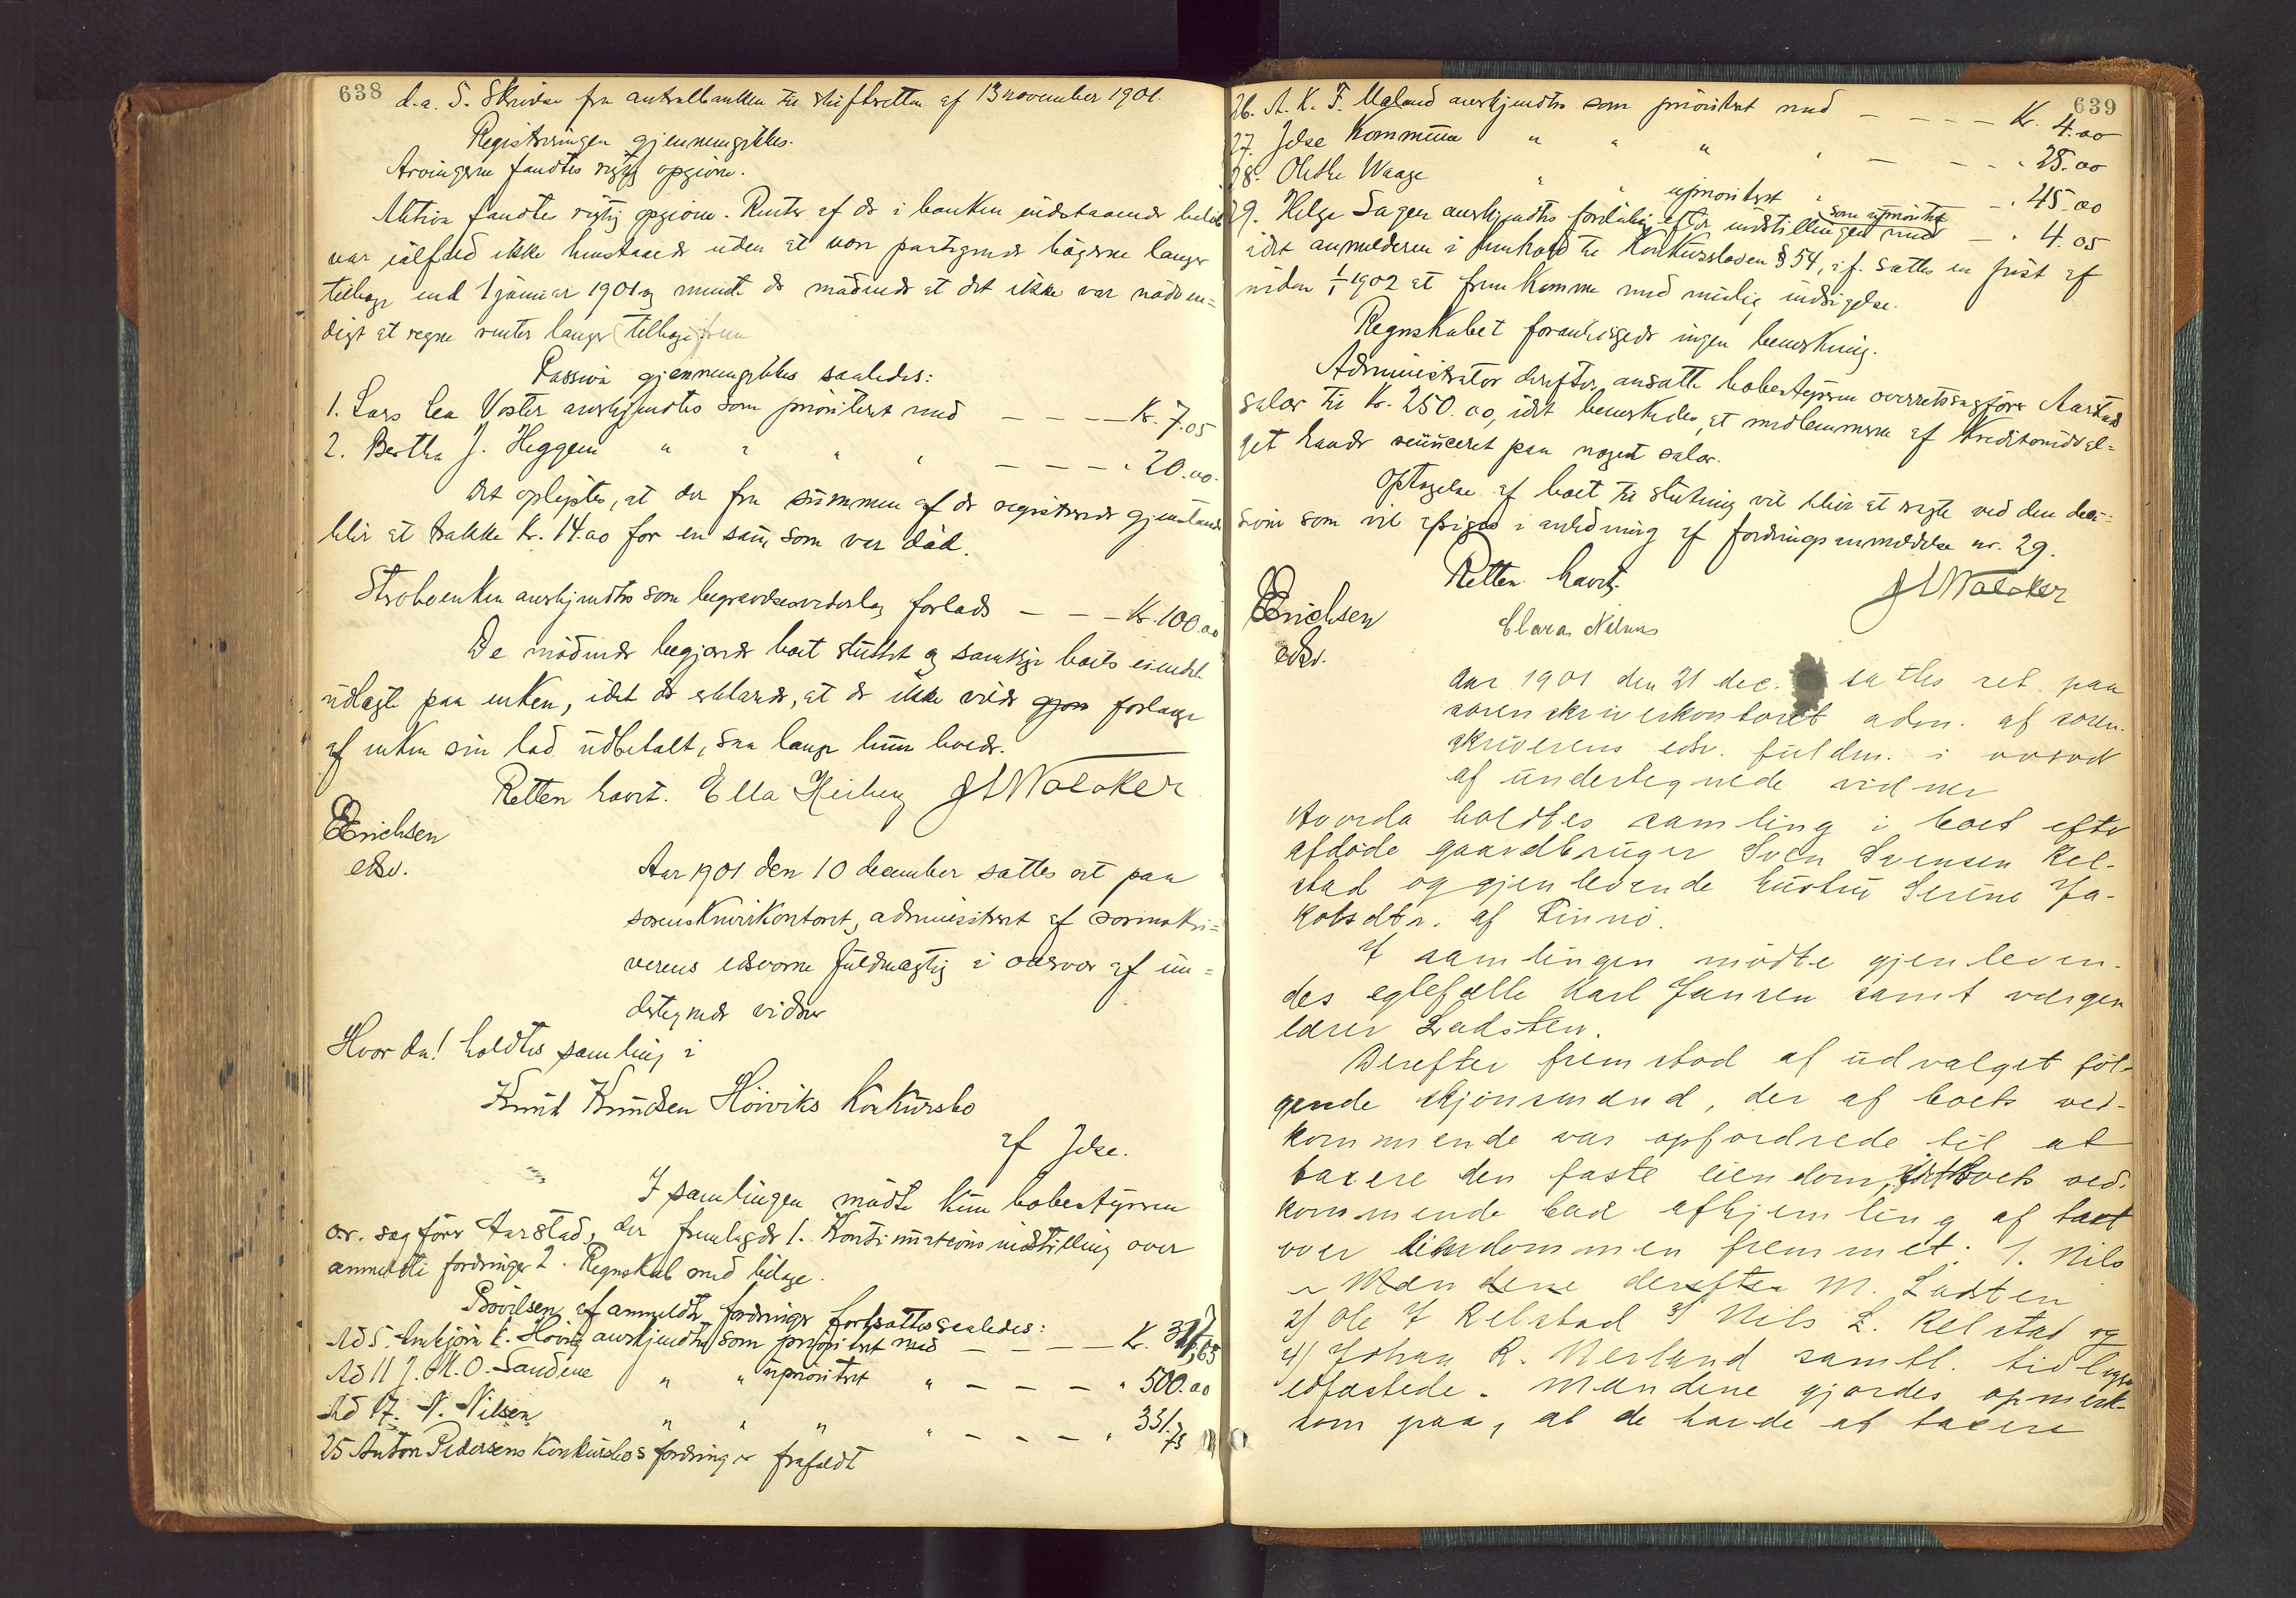 638
d. a. S. Skrivelse fra centralbanken til skifteretten af 13 november 1901.
Registreringen gjennemgikkes.
Arvingerne fandtes rigtig opgivne.
Aktiva fandtes rigtig opgivne. Renter af de i banken indstaaende beløb
var ialfald ikke henstaaende uden at vore paategnede bøgerne længer
tilbage end 1 januar 1901 og mente de mødende at det ikke var nødven=
digt at regne renter længer (tilbage) frem
Passiva gjennemgikkes saaledes:
1. Lars Lea Voster anerkjendtes som prioritert med — — — Kr. 7.05
2. Bertha J. Heggem " " " " — — — " 20.00.
Det oplystes, at der fra summen af de registrerede gjenstande
blir at trække Kr. 14.00 for en sau, som var død.
Strvboenken anerkjendtes som begravelsesvederlag forlods — — — Kr. 100.00
De mødende begjærede boet sluttet og samtlige boets eiendele
udlagte paa enken, idet de erklærede, at de ikke vilde gjøre forlange
af enken sin lod udbetalt, saa længe hun levede.
Retten hævet. Ella Heiberg JLWalcker
EErichsen
edsv.
Aar 1901 den 10 december sattes ret paa
sorenskriverkontoret, administrert af sorenskri=
verens edsvorne fuldmægtig i overvær af un=
dertegnede vidner
Hvor da! holdtes samling i
Knut Knudsen Høiviks Konkursbo
af Jelse.
I samlingen mødte kun bobestyreren
o.r. sagfører Aarstad, der fremlagde 1. Kontinuationsindstilling over
anmeldte fordringer 2. Regnskab med bilage.
Prøvelsen af anmeldte fordringer fortsattes saaledes:
Ad 5. K. Høivig anerkjendtes som prioritert med — — — Kr. 65
Ad 11 J. M. O. Sandene " " uprioritert " — — — " 500.00
Ad 17. N. Nilsen " " " " — — — " 331.75
25 Anton Pedersens Konkursbos fordring er frafaldt
639
26. A. K. F. Maland anerkjendtes som prioritert med — — — — Kr. 4.00
27. Jelse Kommune " " " " — — — " 28.00
28. Olethe Waage " " uprioritert " — " 45.00
29. Helge Sagen anerkjendtes foreløbig efter indstillingen med som uprioritet — " 4.05
idet anmelderen i henhold til Konkursloven § 54, jf. sattes en frist af
inden 1/1 1902 at fremkomme med mulig indsigelse.
Regnskabet foranledigede ingen bemerkning.
Administrator derefter ansatte bobestyreren overretssagfører Aarstads
salær til Kr. 250.00, idet bemerkedes, at medlemmerne af Kreditorudval=
get havde renunceret paa noget salær.
Optagelse af boet til slutning vil blive at rette ved den deci=
sion som vil afsiges i anledning af fordringsanmeldelse nr. 29.
Retten hævet. JLWalcker
EErichsen Clara Nilsens
edsv.
Aar 1901 den 21 dec. sattes ret paa
sorenskriverkontoret adm. af soren-
skriverens edsv. fuldm. i overvær
af undertegnede vidner
Hvorda holdtes samling i boet efter
afdøde gaardbruger Sven Svensen Rel-
stad og gjenlevende hustru Serine Ja-
kobsdtr. af Finnø.
I samlingen mødte gjenleven-
des egtefælle Karl Jansen samt værgen
lærer Ladsten.
Derefter fremstod af udvalget føl-
gende skjønsmænd, der af boets ved-
kommende var opfordrede til at
taxere den faste eiendom, idet boets ved-
kommende bad afhjemling af taxt
over eiendommen fremmet: 1. Nils
Mændene derefter M. Ladsten
2) Ole J Relstad 3) Nils L. Relstad og
4) Johan R. Nerland samtl. tidligere
edfæstede. Mændene gjordes opmerk-
som paa, at de havde at taxere